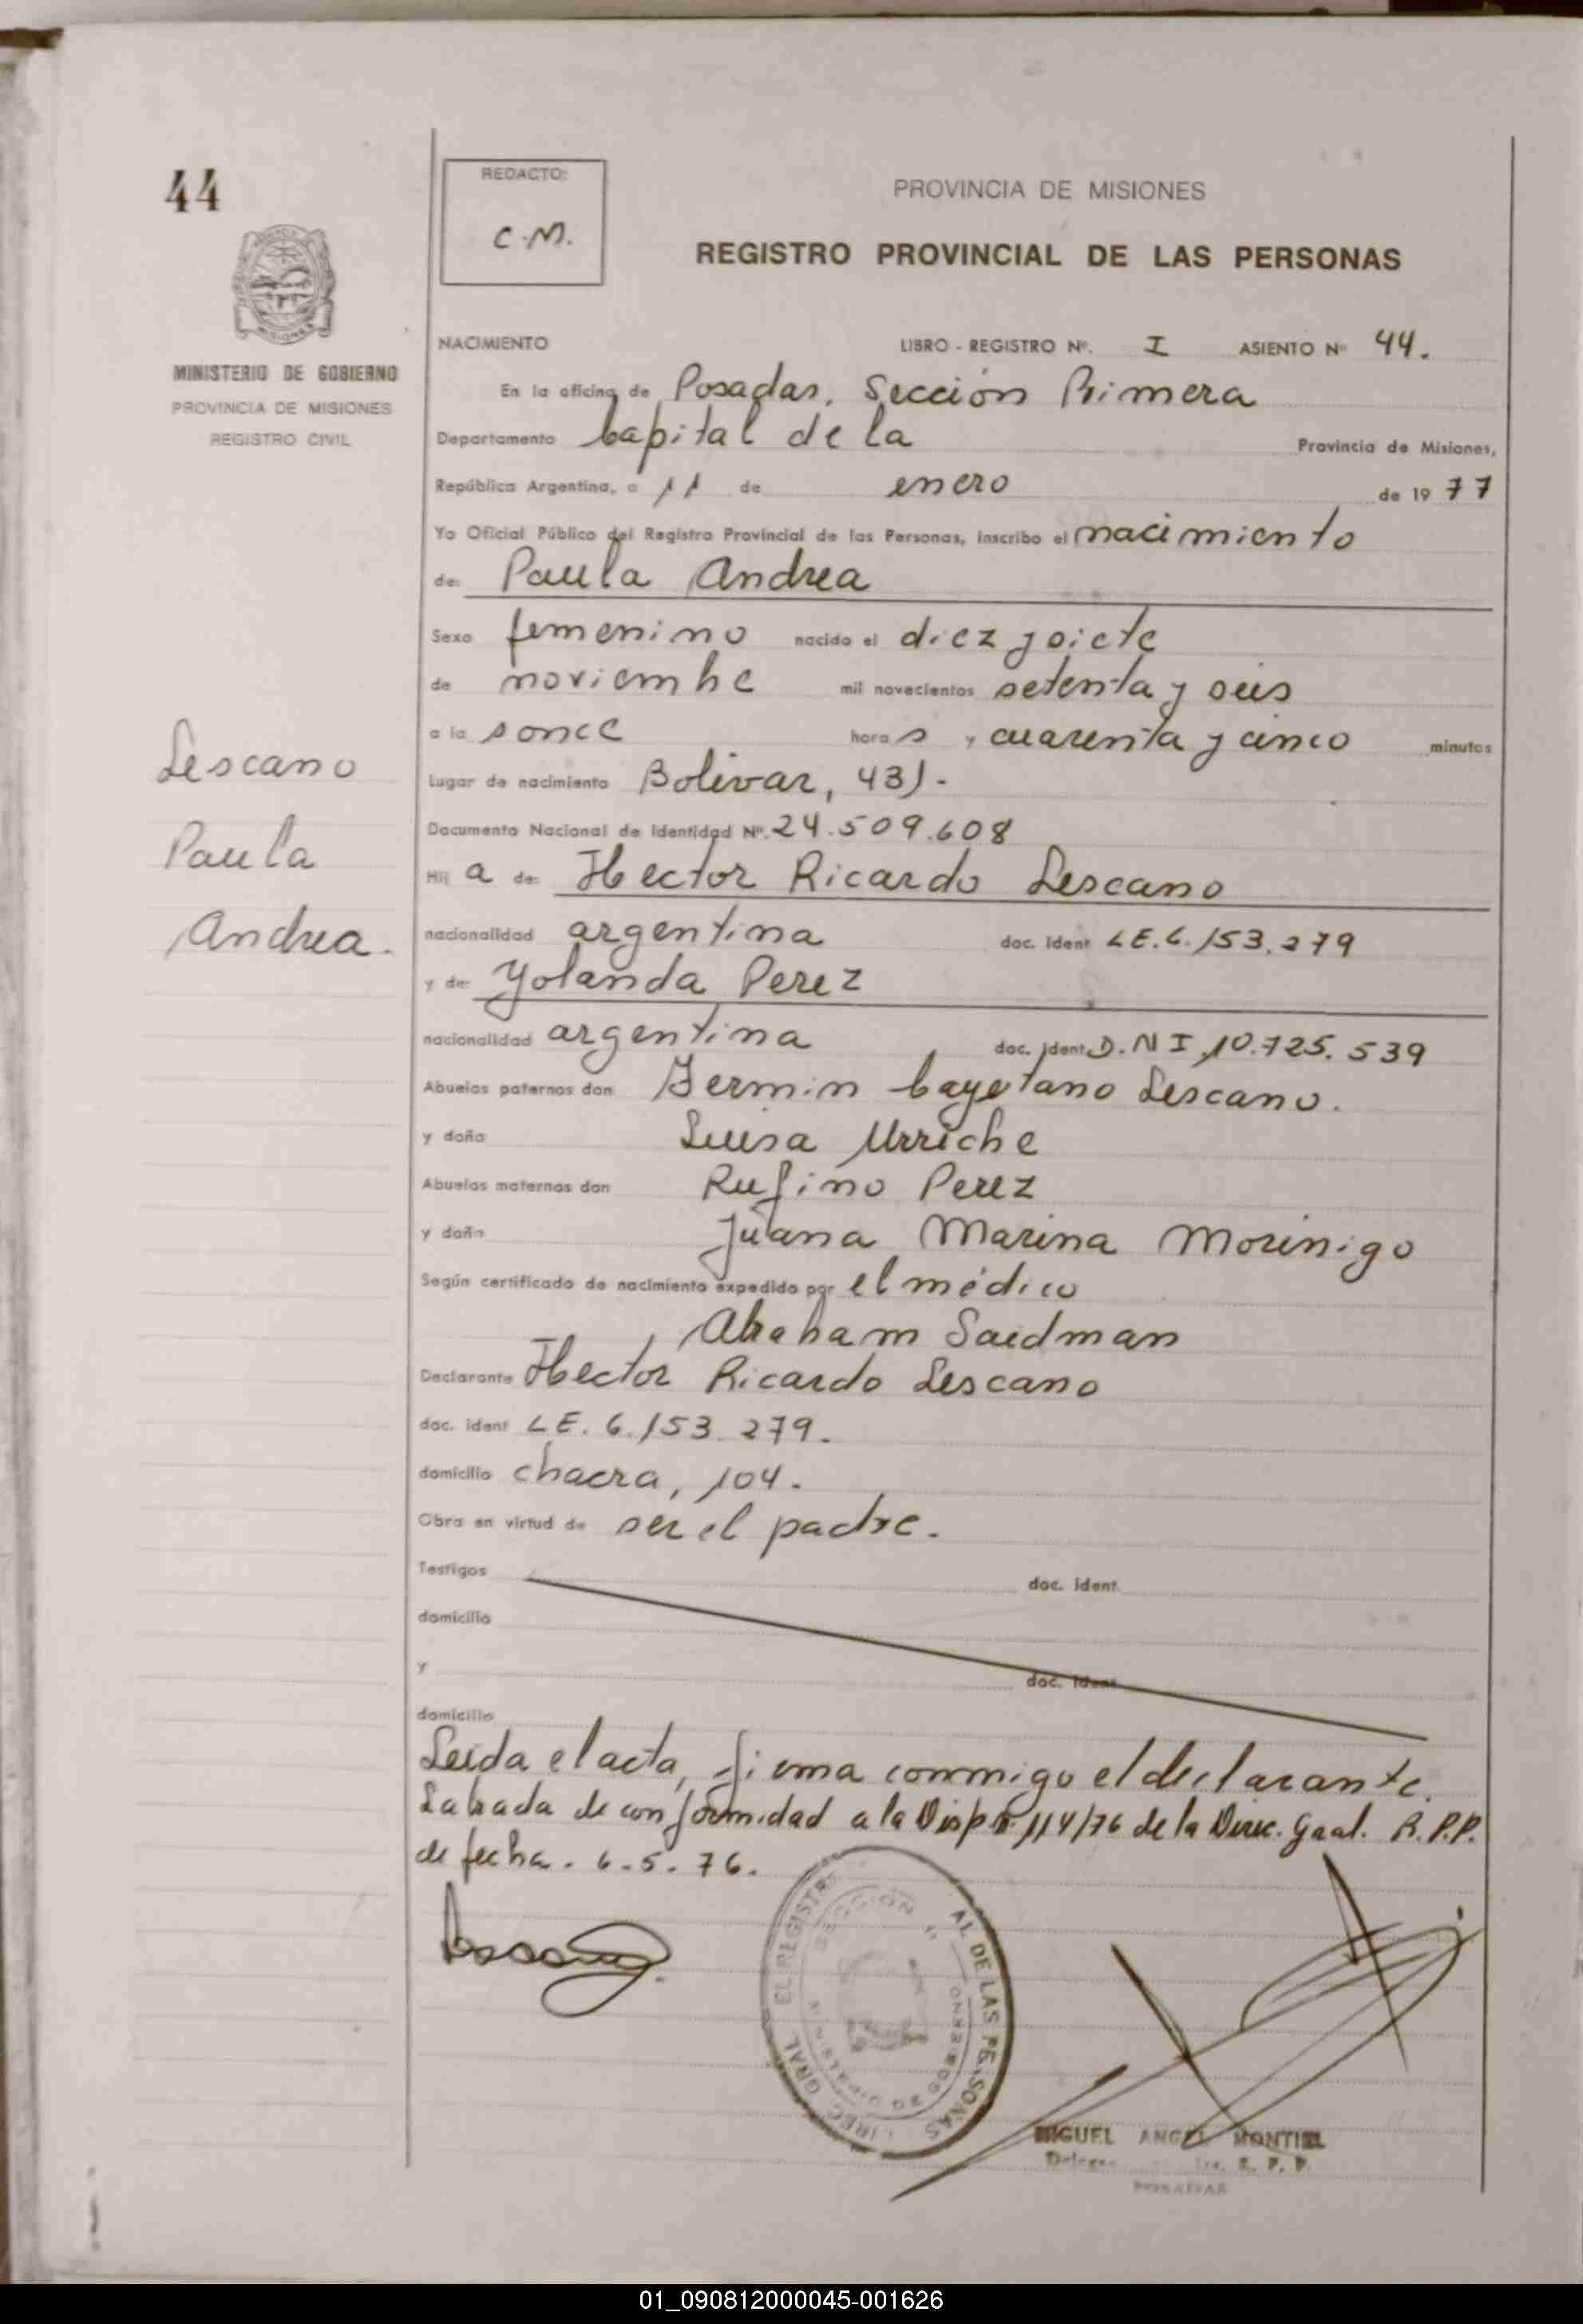 44
REDACTO:
C.M.
PROVINCIA DE MISIONES
REGISTRO PROVINCIAL DE LAS PERSONAS
MINISTERIO DE GOBIERNO
PROVINCIA DE MISIONES
REGISTRO CIVIL
NACIMIENTO LIBRO - REGISTRO Nº. I ASIENTO Nº 44.
En la oficina de Posadas. Sección Primera
Departamento Capital de la Provincia de Misiones,
República Argentina, a 11 de enero de 1977
Yo Oficial Público del Registro Provincial de las Personas, inscribo el nacimiento
de: Paula Andrea
Sexo femenino nacido el diez y siete
de noviembre mil novecientos setenta y seis
a la s once hora s y cuarenta y cinco minutos
Lugar de nacimiento Bolivar, 431.
Documento Nacional de Identidad Nº. 24.509.608
Hij a de: Hector Ricardo Lescano
nacionalidad argentina doc. ident LE.6.153.279
y de: Yolanda Perez
nacionalidad argentina doc. ident D.N I 10.725.539
Abuelos paternos don Fermin Cayetano Lescano.
y doña Luisa Urriche
Abuelos maternos don Rufino Perez
y doña Juana Marina Morinigo
Según certificado de nacimiento expedido por el médico
Abraham Saidman
Declarante Hector Ricardo Lescano
doc. ident LE. 6.153.279.
domicilio chacra, 104.
Obra en virtud de ser el padre.
Testigos doc. ident.
domicilio
y doc. ident
domicilio
Leida el acta, firma conmigo el declarante.
Labrada de conformidad a la Disp. nº 114/76 de la Direc. Gral. R.P.P.
de fecha. 6-5-76.
Lescano
Paula
Andrea.
DIREC. GRAL. DEL REGISTRO AL DE LAS PERSONAS
SECCION 1ª
MIGUEL ANGEL MONTIEL
R. P. P.
POSADAS
01_090812000045-001626